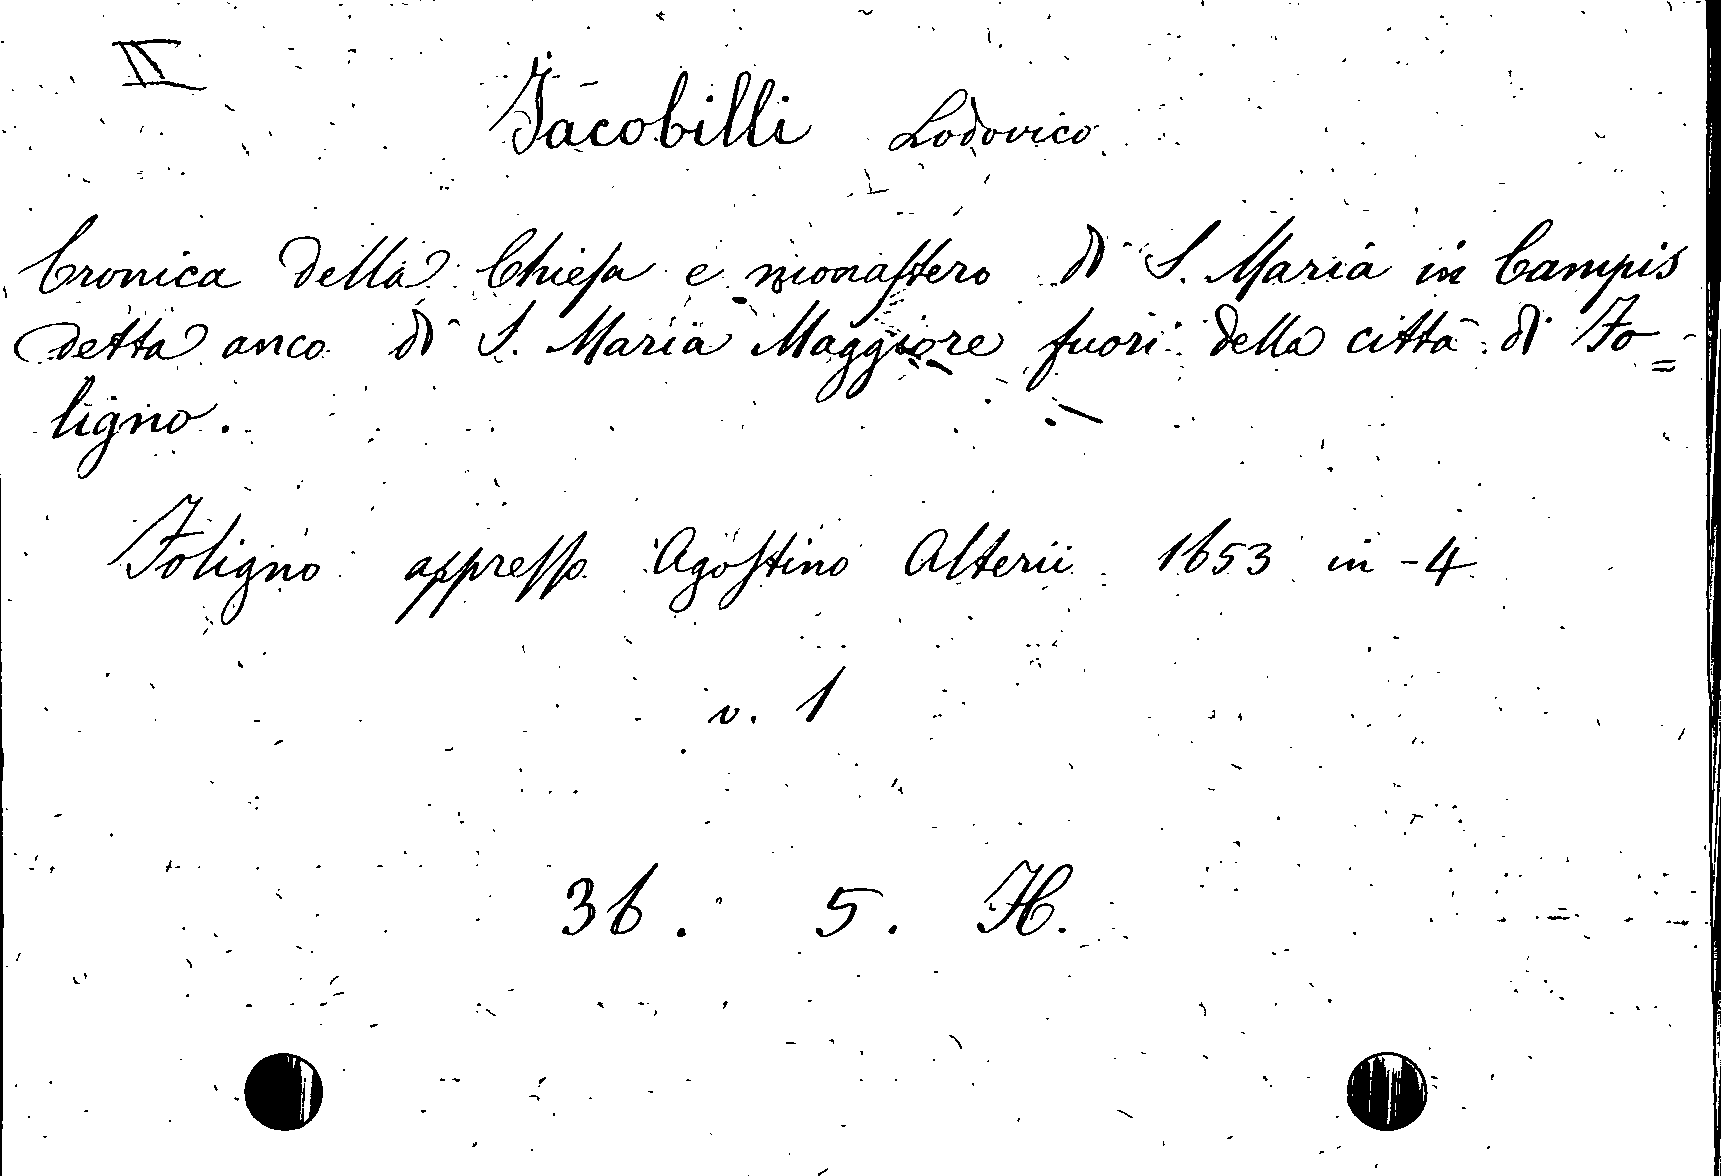 IV
Jacobilli Lodovico
Cronica della Chiesa e monastero di S. Maria in Campis
detta anco di S. Maria Maggiore fuori della città di Fo=
ligno.
Foligno appresso Agostino Alterii 1653 in-4
v. 1
36. 5. H.